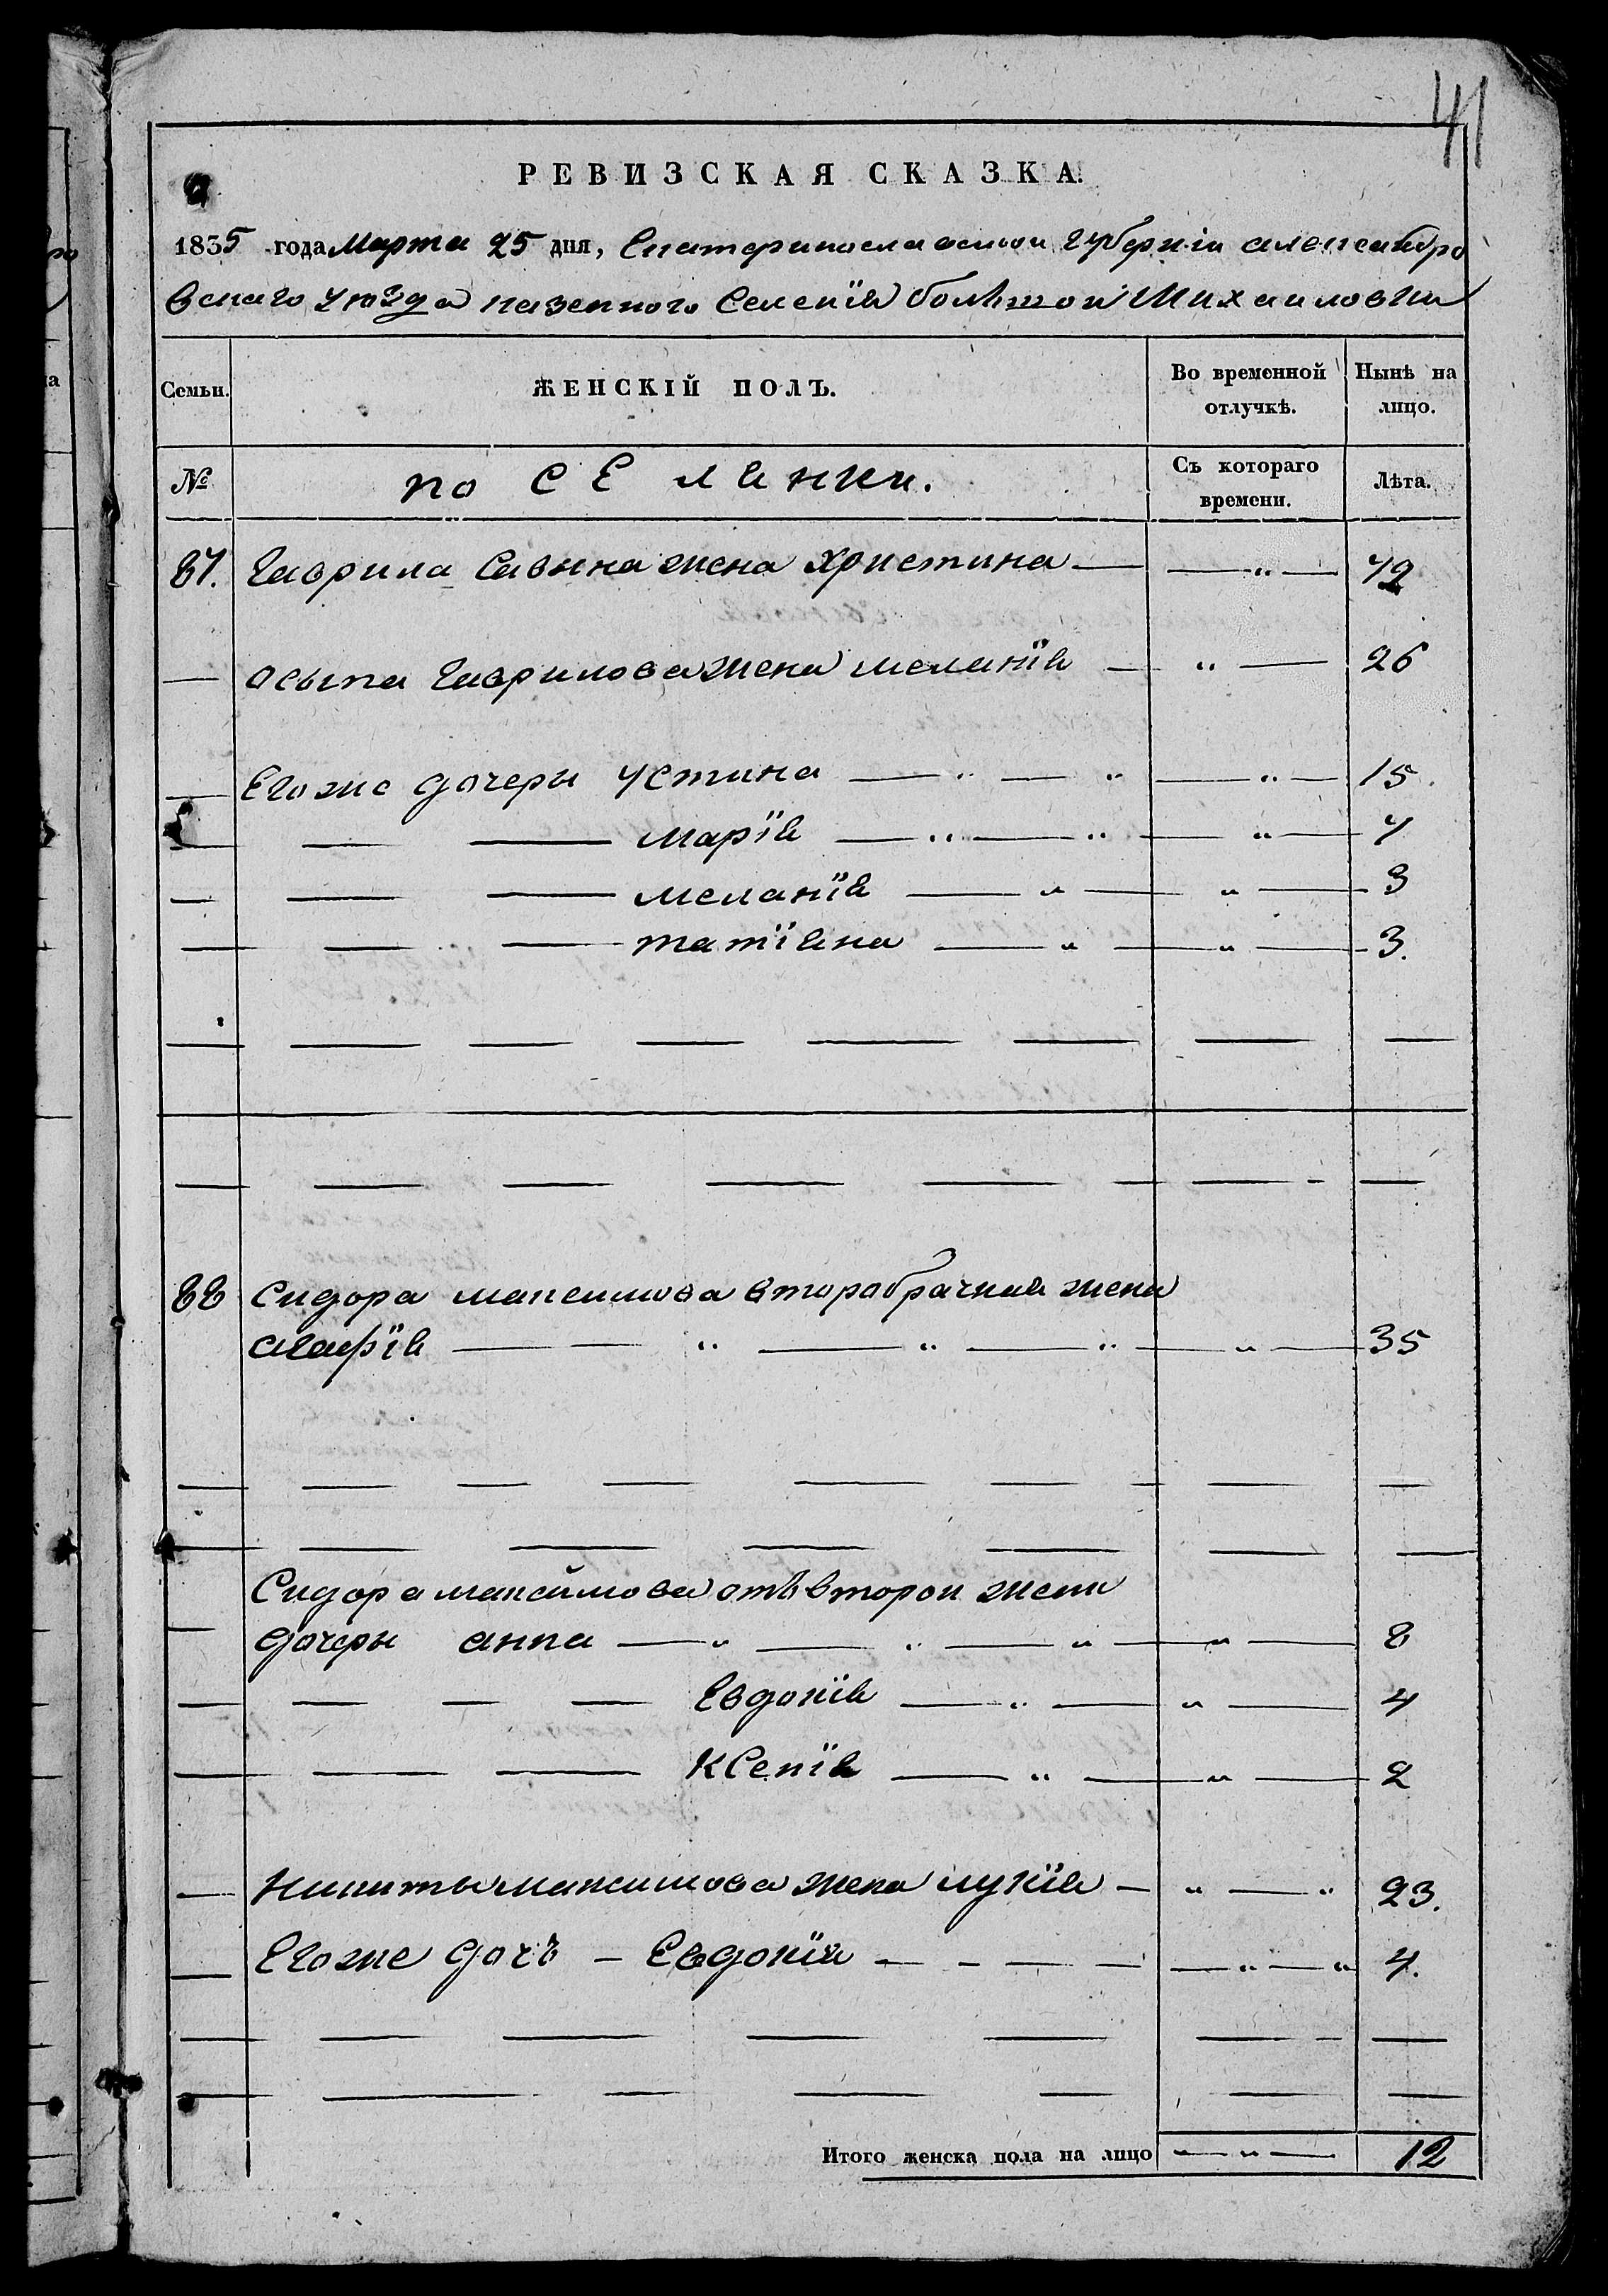 41
РЕВИЗСКАЯ СКАЗКА.
1835 года Марта 25 дня, Екатеринославской губерніи александро
вскаго уюзда казенного Селенія большой Михаиловки
Семьи. ЖЕНСКІЙ ПОЛЪ. Во временной отлучкѣ. Нынѣ на лицо.
№ поСЕляики. Съ котораго времени. Лѣта.
87. Гаврила Савына жена Христина — — " — 72
— осыпа Гаврилова жена меланія — " — 26
— Егоже дочеры Устина — " — " — " — 15.
— — — марія — " — " — " — 7
— — — меланія — " — " — 3
— — — татіяна — " — " — 3.
88 Сидора максимова вторабрачная жена
агафія — — " — " — " — " — 35
Сидора максимова отъ второи жени
— дочеры анна — " — " — " — " — 8
— — — — Евдокія — " — " — 4
— — — Ксенія — " — " — 2
— Никиты максимова жена лукія — " — " 23.
— Егоже дочъ — Евдокія — — — — — " — " 4.
Итого женска пола на лицо — " — 12